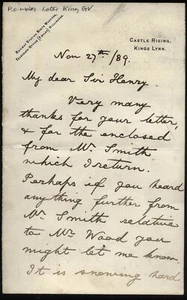 P. of Wales later King G.V
CASTLE RISING,
KINGS LYNN.
Nov 27th/89.
My dear Sir Henry.
Very many
thanks for your letter,
& for the enclosed
from Mr. Smith
which I return.
Perhaps if you heard
anything further from
Mr. Smith relative
to Mr. Wood you
might let me know.
It is snowing hard